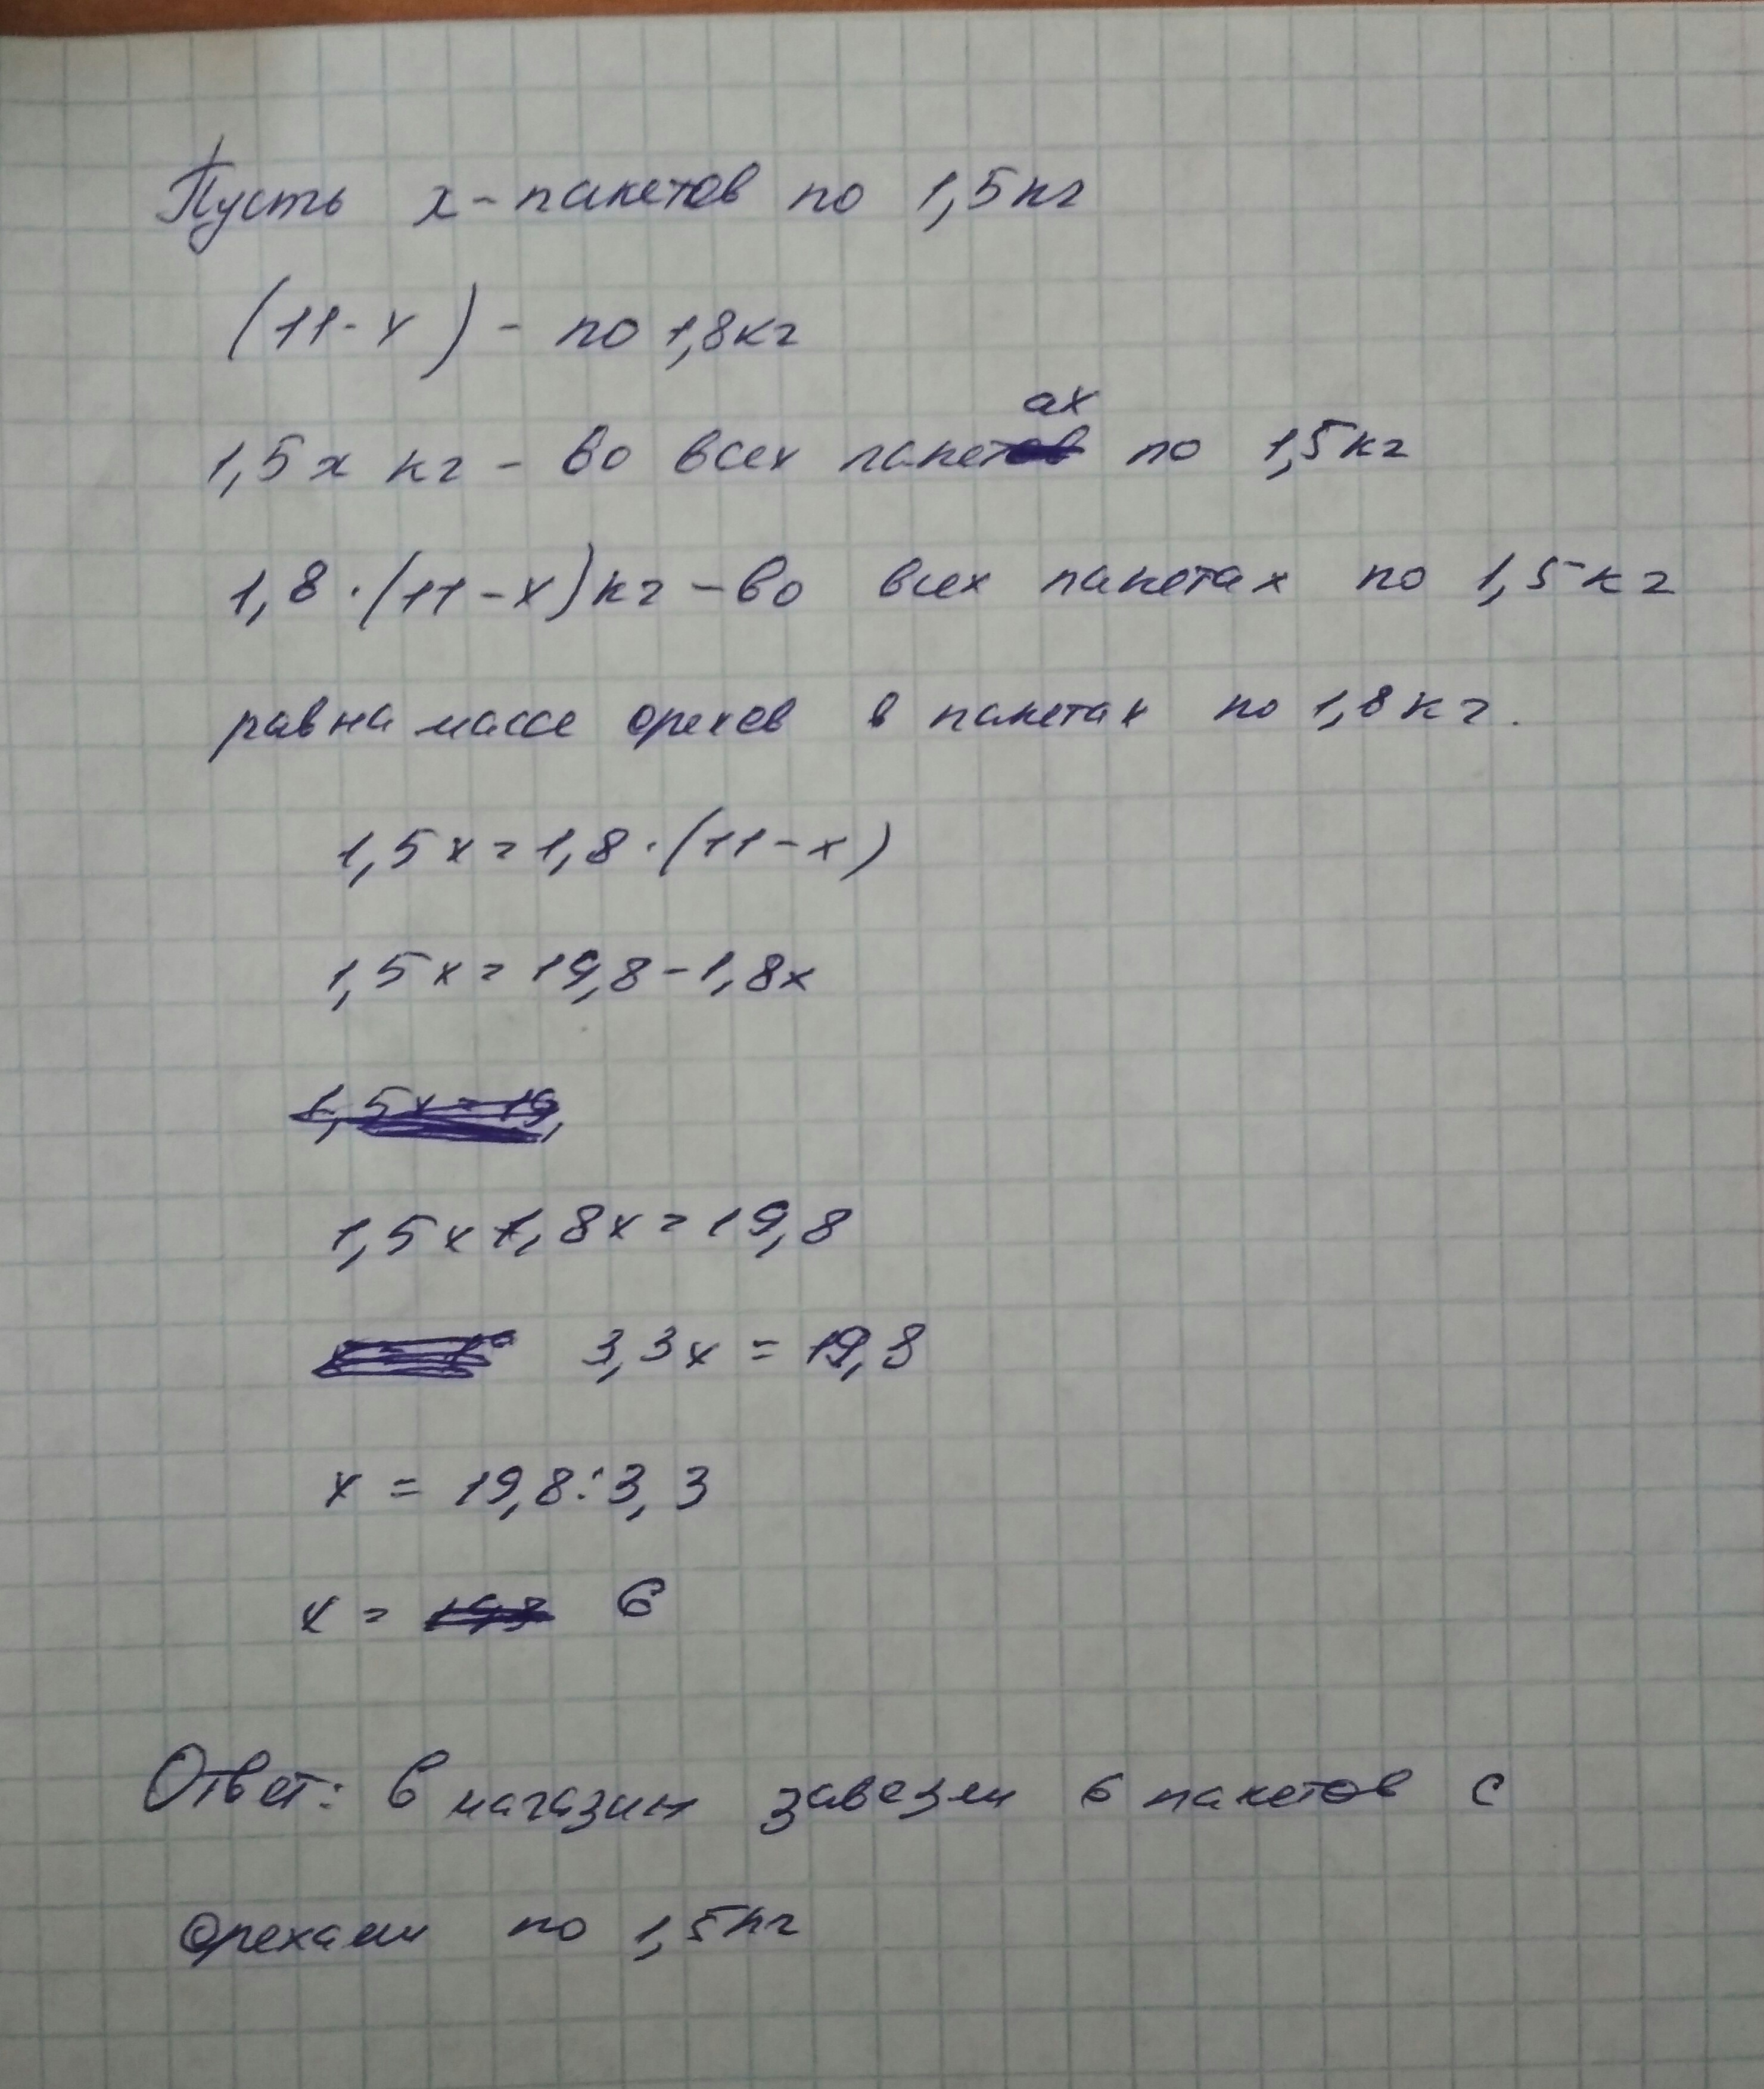 Пусть x - пакетов по 1,5 кг
(11 - x) - по 1,8 кг
1,5 x кг - во всех пакетах по 1,5 кг
1,8 · (11 - x) кг - во всех пакетах по 1,5 кг
равна массе орехов в пакетах по 1,8 кг.
1,5 x = 1,8 · (11 - x)
1,5 x = 19,8 - 1,8 x
1,5 x = 19,
1,5 x + 1,8 x = 19,8
3,3 x = 19,8
x = 19,8 : 3,3
x = 6
Ответ: в магазин завезли 6 пакетов с
орехами по 1,5 кг